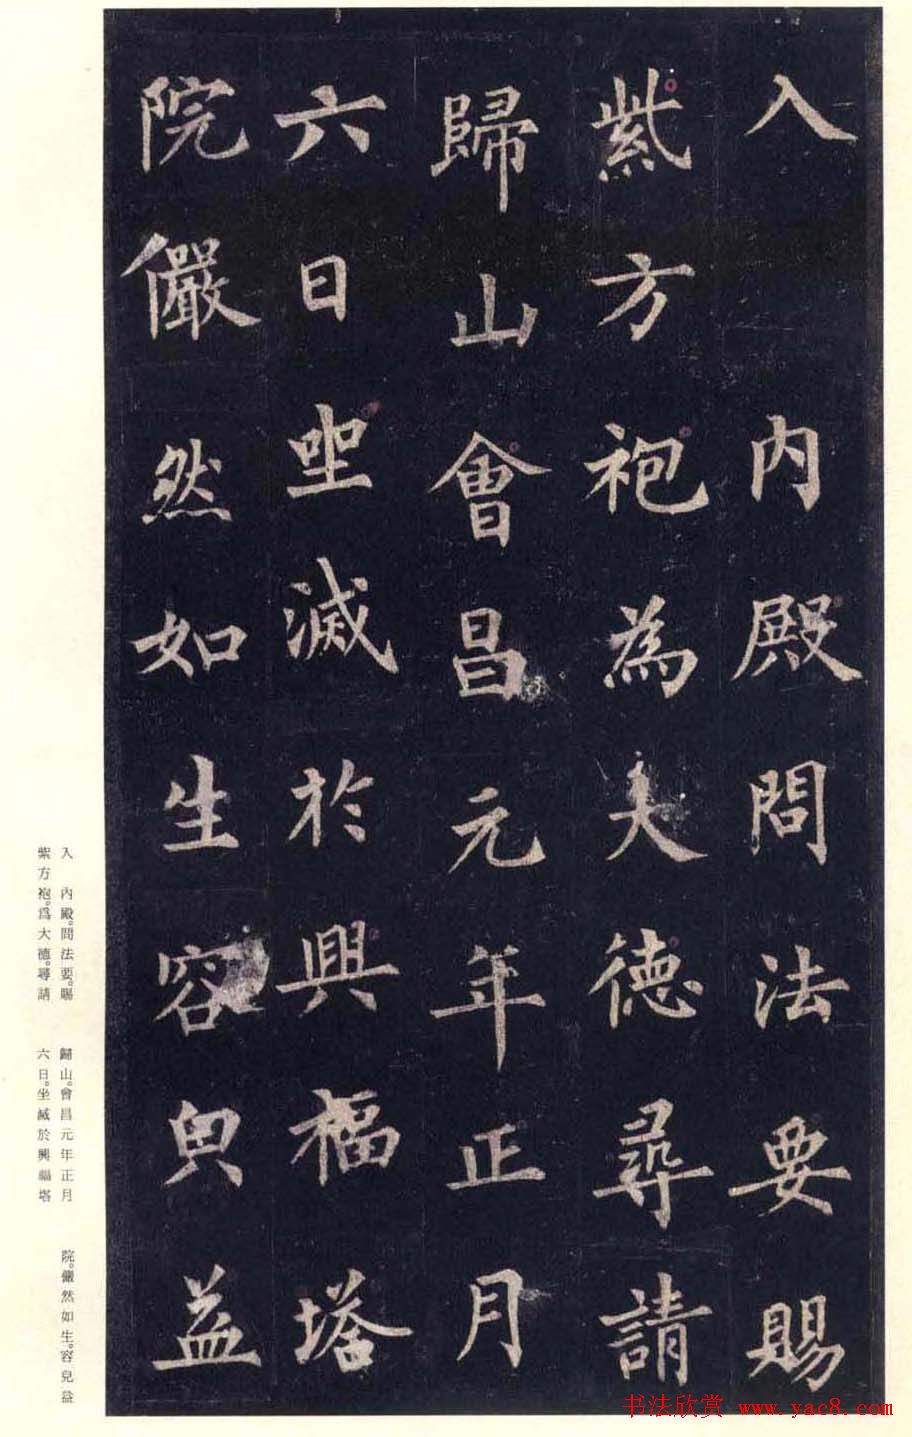 入 内殿問法要賜
紫方袍為大德尋請
歸山會昌元年正月
六日坐滅於興福塔
院儼然如生容皃益
入 內殿。問法要。賜
紫方袍。爲大德。尋請
歸山。會昌元年正月
六日。坐滅於興福塔
院。儼然如生。容皃益
书法欣赏 www.yac8.com